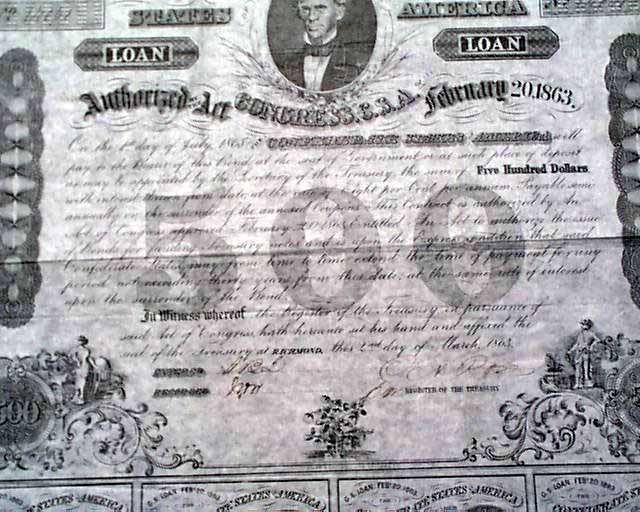 STATES AMERICA
LOAN LOAN
Authorized Act CONGRESS, C.S.A. February 20, 1863.
On the 1st day of July 1868 CONFEDERATE STATES AMERICA will
pay to the Bearer of this Bond, at the seat of Government or at such place of deposit
as may be appointed by the Secretary of the Treasury, the sum of Five Hundred Dollars
with interest thereon from date, at the rate of Eight per Cent per annum, Payable semi
annually on the surrender of the annexed Coupons. This Contract is authorized by An
Act of Congress approved February 20, 1863, Entitled "An Act to authorize the issue
of Bonds for funding Treasury notes and is upon the Express condition that said
Confederate States may from time to time extend the time of payment for any
period not exceeding thirty years from this date, at the same rate of interest
upon the surrender of the Bond
500
In Witness whereof the Register of the Treasury in pursuance of
said Act of Congress hath hereunto set his hand and affixed the
seal of the Treasury at RICHMOND, this 2nd day of March, 1863.
ENTERED
RECORDED REGISTER OF THE TREASURY
500
C.S. LOAN FEB. 20, 1863 C.S. LOAN FEB. 20, 1863 C.S. LOAN FEB. 20, 1863
THE THE THE
STATES AMERICA CONFEDERATE STATES AMERICA CONFEDERATE STATES AMERICA CONFEDERATE STATES